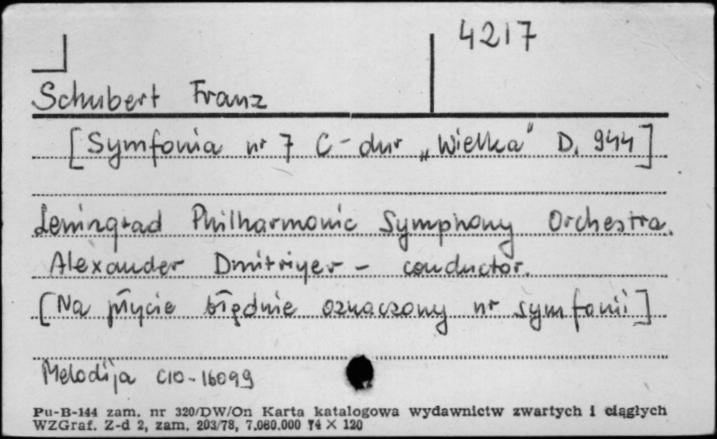 4217
Schubert Franz
[Symfonia nr 7 C-dur „Wielka" D. 944]
Leningrad Philharmonic Symphony Orchestra.
Alexander Dmitriyev - conductor.
[Na płycie błędnie oznaczony nr symfonii]
Melodija C10-16099
Pu-B-144 zam. nr 320/DW/On Karta katalogowa wydawnictw zwartych i ciągłych
WZGraf. Z-d 2, zam. 203/78, 7.060.000 74 × 120